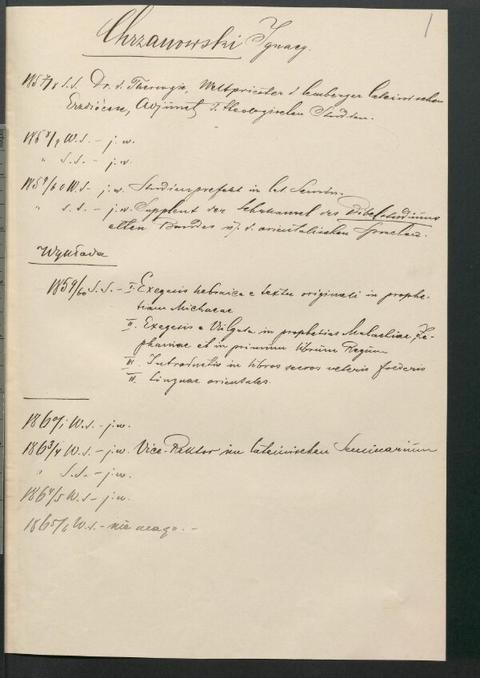 1
Chrzanowski Ignacy.
1857/8 S.S. Dr. d. Theologie, Weltpriester d. lemberger lateinischen
Erzdiöcese, Adjunct d. theologischen Studien.
1858/9 W.S. – j.w.
" S.S. – j.w.
1859/60 W.S. – j.w. Studienprefekt in lat. Semin.
" S.S. – j.w. Supplent der Lehrkanzel des Bibelstudiums
alten Bundes u. d. orientalischen Sprachen.
Wykłada
1859/60 S.S. – I. Exegesis hebraica e textu originali in prophe-
tiam Michaeae
II. Exegesis e Vulgata in prophetias Malachiae, Ze-
phaniae et in primum librum Regum
III. Introductio in libros sacros veteris foederis
IV. Linguae orientales.
1860/1 W.S. – j.w.
1863/4 W.S. – j.w. Vice-Rektor im lateinischen Seminarium
" S.S. – j.w.
1864/5 W.S. – j.w.
1865/6 W.S. – nie ma go. –